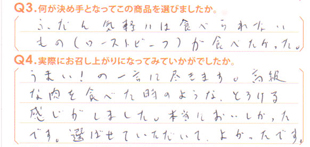 Q3.何が決め手となってこの商品を選びましたか。
ふだん気軽には食べられない
もの(ローストビーフ)が食べたかった。
Q4.実際にお召し上がりになってみていかがでしたか。
うまい!の一言に尽きます。高級
な肉を食べた時のような、とろける
感じがしました。本当においしかった
です。選ばせていただいて、よかったです。